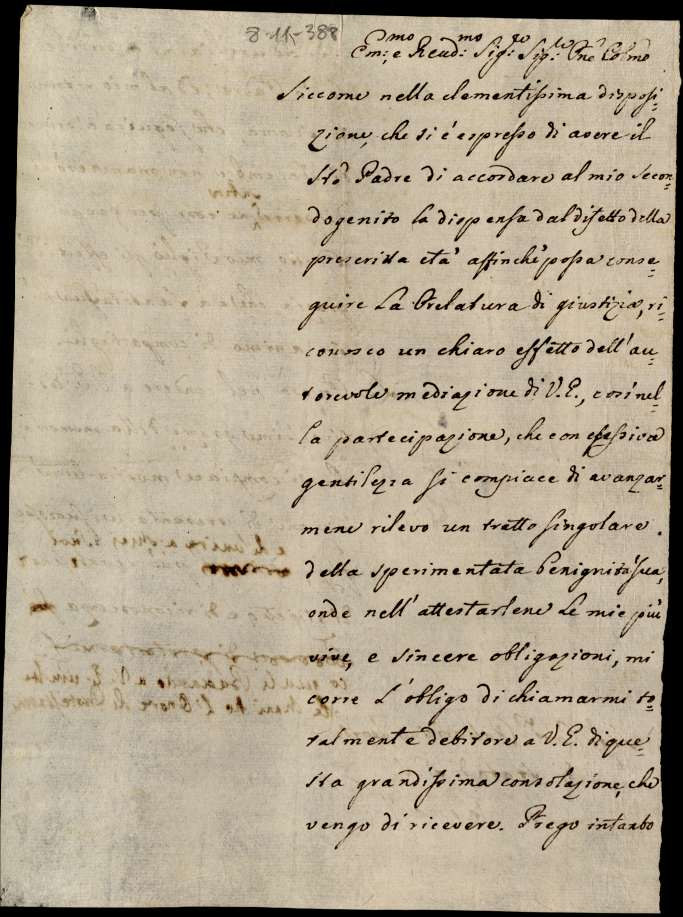 8-11-388
Em:mo e Reud:mo Sig:re Sig:re Pne Colmo
Siccome nella clementissima disposi=
zione, che si è espresso di avere il
Sto Padre di accordare al mio secon=
dogenito la dispensa dal difetto della
prescritta età affinchè possa conse=
guire La Prelatura di giustizia, ri=
conosco un chiaro effetto dell'au=
torevole mediazione di V.E., così nel=
la partecipazione, che con eccessiva
gentilezza si compiace di avanzar=
mene rilevo un tratto singolare
della sperimentata benignità sua,
onde nell'attestarlene Le mie più
vive, e sincere obligazioni, mi
corre L'obligo di chiamarmi to=
talmente debitore a V.E. di que=
sta grandissima consolazione, che
vengo di ricevere. Prego intanto